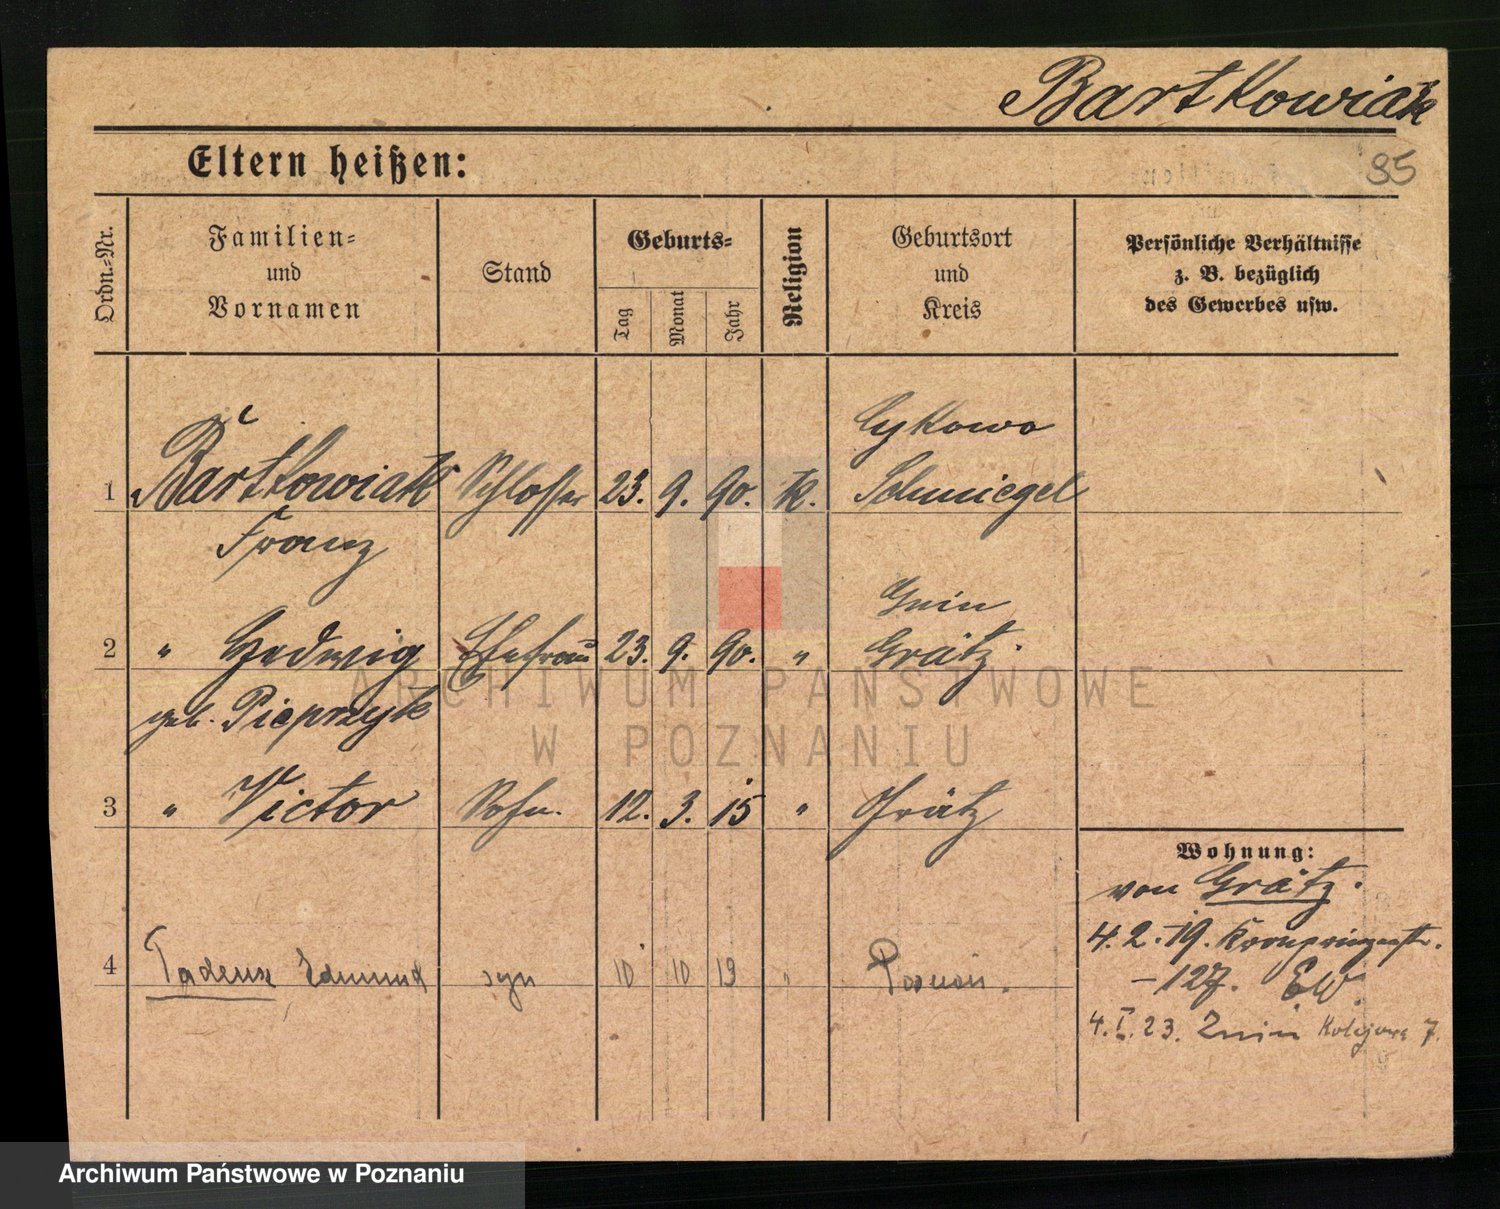 Bartkowiak
95
Eltern heißen:
Ordn.-Nr.
Familien-
und
Vornamen
Stand
Geburts-
Tag
Monat
Jahr
Religion
Geburtsort
und
Kreis
Persönliche Verhältnisse
z. B. bezüglich
des Gewerbes usw.
Lykowo
1 Bartkowiak Schlosser 23. 9. 90. k. Schmiegel
Franz
2 " Hedwig Ehefrau 23. 9. 90. " Grätz.
geb. Pieprzyk
3 " Victor Sohn. 12. 3. 15 " Grätz
Wohnung:
von Grätz.
4. 2. 19. Kronprinzenstr.
- 127. E.W.
4 Tadeusz Edmund syn 10 10 19 " Poznań.
4. I. 23. Żnin Kolejowa 7.
ARCHIWUM PAŃSTWOWE
W POZNANIU
Archiwum Państwowe w Poznaniu